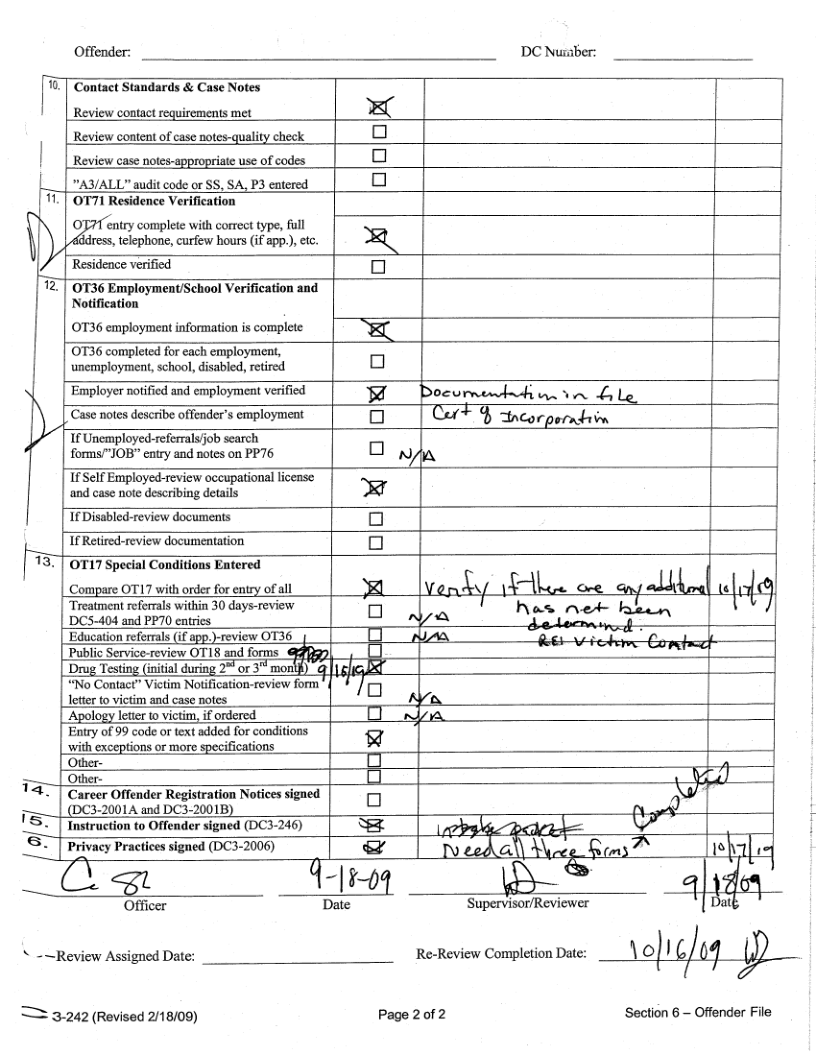 Offender: DC Number:
10. Contact Standards & Case Notes
Review contact requirements met
Review content of case notes-quality check
Review case notes-appropriate use of codes
"A3/ALL" audit code or SS, SA, P3 entered
11. OT71 Residence Verification
OT71 entry complete with correct type, full
address, telephone, curfew hours (if app.), etc.
Residence verified
12. OT36 Employment/School Verification and
Notification
OT36 employment information is complete
OT36 completed for each employment,
unemployment, school, disabled, retired
Employer notified and employment verified Documentation in file
Case notes describe offender's employment Cert of Incorporation
If Unemployed-referrals/job search
forms/"JOB" entry and notes on PP76 N/A
If Self Employed-review occupational license
and case note describing details
If Disabled-review documents
If Retired-review documentation
13. OT17 Special Conditions Entered
Compare OT17 with order for entry of all Verify if there are any additional 10/17/09
Treatment referrals within 30 days-review has not been
DC5-404 and PP70 entries N/A determined.
Education referrals (if app.)-review OT36 N/A REI Victim Contact
Public Service-review OT18 and forms
Drug Testing (initial during 2nd or 3rd month) 9/15/09
"No Contact" Victim Notification-review form
letter to victim and case notes N/A
Apology letter to victim, if ordered N/A
Entry of 99 code or text added for conditions
with exceptions or more specifications
Other-
Other-
14. Career Offender Registration Notices signed
(DC3-2001A and DC3-2001B) Completed
15. Instruction to Offender signed (DC3-246) intake packet
6. Privacy Practices signed (DC3-2006) Need all three forms 10/17/09
9-18-09 9/18/09
Officer Date Supervisor/Reviewer Date
--Review Assigned Date: Re-Review Completion Date: 10/16/09
3-242 (Revised 2/18/09) Page 2 of 2 Section 6 – Offender File